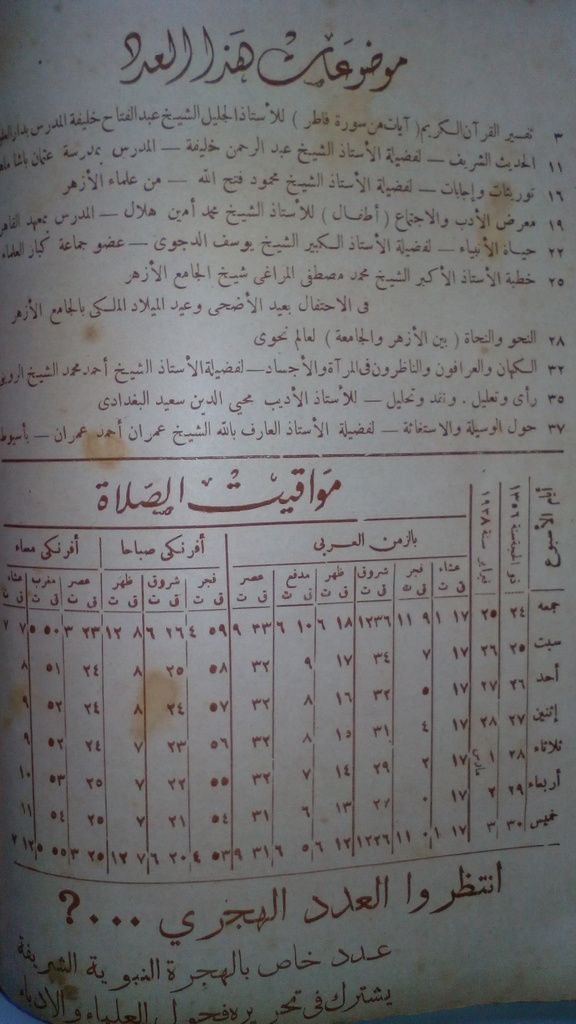 موضوعات هذا العدد
٣ تفسير القرآن الكريم (آيات من سورة فاطر) للأستاذ الجليل الشيخ عبد الفتاح خليفة المدرس
١١ الحديث الشريف — لفضيلة الأستاذ الشيخ عبد الرحمن خليفة — المدرس بمدرسة عثمان باشا
١٦ توريثات وإجابات — لفضيلة الأستاذ الشيخ محمود فتح الله — من علماء الأزهر
١٩ معرض الأدب والاجتماع (أطفال) للأستاذ الشيخ محمد أمين هلال — المدرس بمعهد
٢٢ حياة الأنبياء — لفضيلة الأستاذ الكبير الشيخ يوسف الدجوى — عضو جماعة كبار العلماء
٢٥ خطبة الأستاذ الأكبر الشيخ محمد مصطفى المراغى شيخ الجامع الأزهر
فى الاحتفال بعيد الأضحى وعيد الميلاد الملكى بالجامع الأزهر
٢٨ النحو والنحاة (بين الأزهر والجامعة) لعالم نحوى
٣٢ الكهان والعرافون والناظرون فى المرآة والأجساد — لفضيلة الأستاذ الشيخ أحمد محمد الشيخ
٣٥ رأى وتعليل . ونقد وتحليل — للأستاذ الأديب محيى الدين سعيد البغدادى
٣٧ حول الوسيلة والاستغاثة — لفضيلة الأستاذ العارف بالله الشيخ عمران أحمد عمران — بأسيوط
مواقيت الصلاة
ذو الحجة سنة ١٣٥٦
فبراير سنة ١٩٣٨
بالزمن العربى أفرنكى صباحا أفرنكى مساء
عشاء فجر شروق ظهر مدفع عصر فجر شروق ظهر عصر مغرب عشاء
ق ت ق ت ق ت ق ت ق ت ق ت ق ت ق ت ق ت ق ت ق ت ق ت
جمعه ٢٤ ٢٥ ١٧ ١ ٩ ١١ ٣٦ ١٢ ١٨ ٦ ١٠ ٦ ٣٣ ٩ ٥٩ ٤ ٢٦ ٦ ٨ ١٢ ٢٣ ٣ ٥٠ ٥ ٧ ٧
سبت ٢٥ ٢٦ ١٧ ٧ ٣٤ ١٧ ٩ ٣٢ ٥٨ ٢٥ ٨ ٢٤ ٥١ ٨
أحد ٢٦ ٢٧ ١٧ ٥ ٣٢ ١٦ ٨ ٣٢ ٥٧ ٢٤ ٨ ٢٤ ٥٢ ٩
إثنين ٢٧ ٢٨ ١٧ ٤ ٣١ ١٥ ٨ ٣٢ ٥٦ ٢٣ ٧ ٢٤ ٥٢ ٩
ثلاثاء ٢٨ ١ مارس ١٧ ٢ ٢٩ ١٤ ٧ ٣٢ ٥٥ ٢٢ ٧ ٢٥ ٥٣ ١٠
أربعاء ٢٩ ٢ ١٧ ٠ ٢٧ ١٣ ٦ ٣١ ٥٤ ٢١ ٧ ٢٥ ٥٤ ١١
خميس ٣٠ ٣ ١٧ ١ ٠ ١١ ٢٦ ١٢ ١٢ ٦ ٥ ٦ ٣١ ٩ ٥٣ ٤ ٢٠ ٦ ٧ ١٢ ٢٥ ٣ ٥٥ ٥ ١٢ ٧
انتظروا العدد الهجري ...؟
عدد خاص بالهجرة النبوية الشريفة
يشترك في تحريره فحول العلماء والأدباء